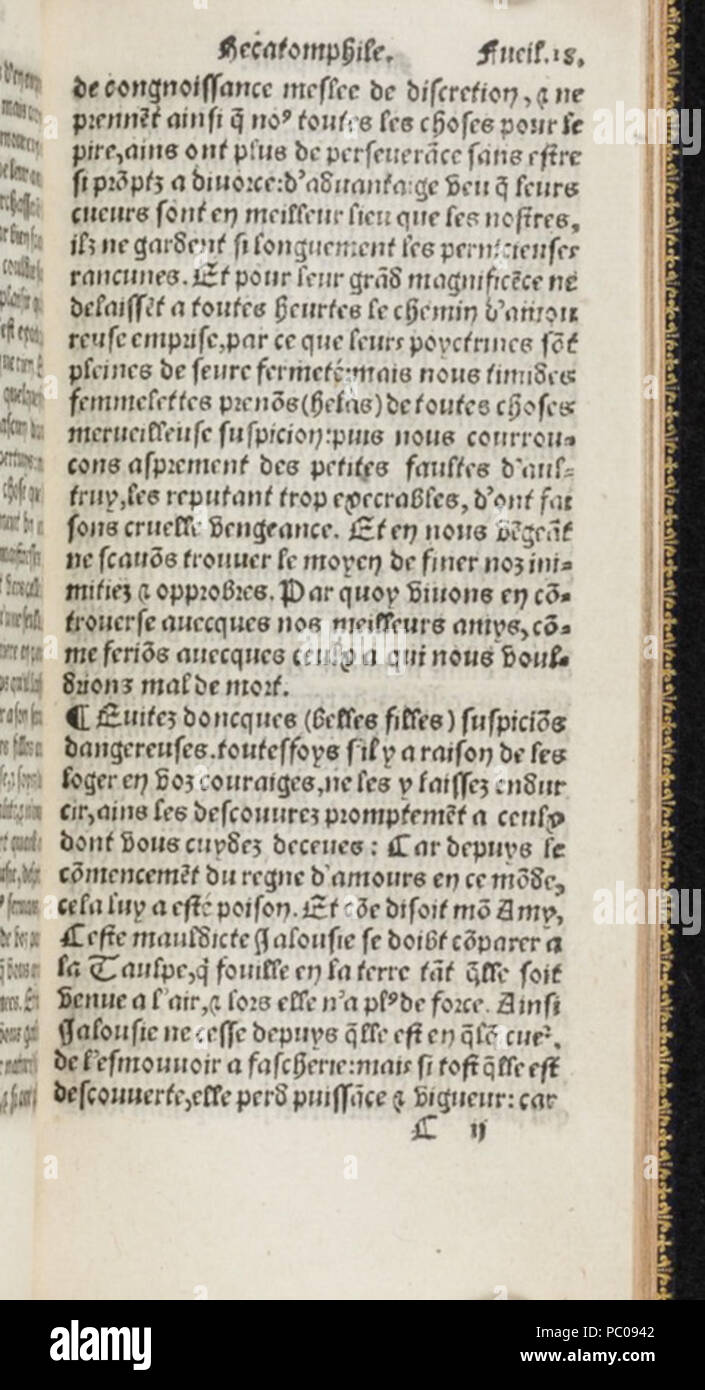 Hecatomphile. Fueil.18.
de congnoissance meslee de discretion, ⁊ ne
prennẽt ainsi q̃ noꝰ toutes les choses pour le
pire, ains ont plus de perseuerãce sans estre
si prõptz a diuorce: d'aduantaige veu q̃ leurs
cueurs sont en meilleur lieu que les nostres,
ilz ne gardent si longuement les pernicieuses
rancunes. Et pour leur grãd magnificẽce ne
delaissẽt a toutes heurtes le chemin d'amou
reuse emprise, par ce que leurs poyctrines sõt
pleines de seure fermeté: mais nous timides
femmelettes prenõs (helas) de toutes choses
merueilleuse suspicion: puis nous courrou-
cons asprement des petites faultes d'aul-
truy, les reputant trop execrables, d'ont fai
sons cruelle vengeance. Et en nous vẽgeãt
ne scauõs trouuer le moyen de finer noz ini-
mitiez ⁊ opprobres. Par quoy viuons en cõ-
trouerse auecques nos meilleurs amys, cõ-
me feriõs auecques ceulx a qui nous voul-
drions mal de mort.
¶ Euitez doncques (belles filles) suspiciõs
dangereuses. toutesfoys s'il y a raison de les
loger en voz couraiges, ne les y laissez endur
cir, ains les descouurez promptemẽt a ceulx
dont vous cuydez deceues: Car depuys le
cõmencemẽt du regne d'amours en ce mõde,
cela luy a esté poison. Et cõe disoit mõ Amy,
Ceste mauldicte Jalousie se doibt cõparer a
la Taulpe, q̃ fouille en la terre tãt q̃lle soit
venue a l'air, ⁊ lors elle n'a plꝰ de force. Ainsi
Jalousie ne cesse depuys q̃lle est en q̃lq̃ cueᵣ,
de l'esmouuoir a fascherie: mais si tost q̃lle est
descouuerte, elle perd puissãce ⁊ vigueur: car
C ij
a alamy
Image ID: PC0942
www.alamy.com